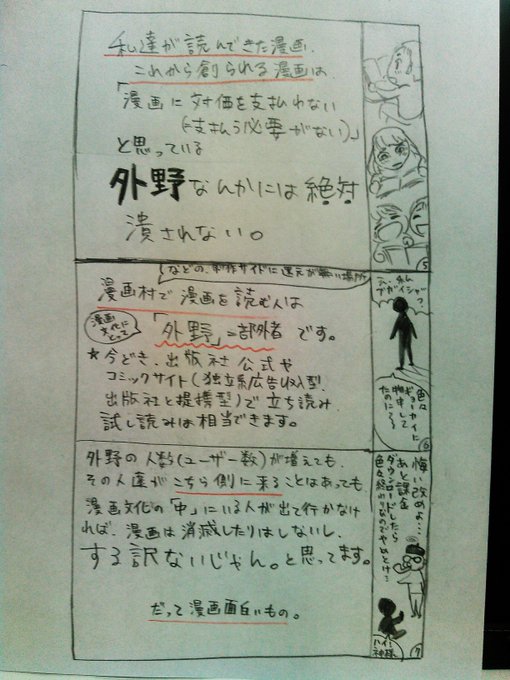 私達が読んできた漫画、
これから創られる漫画は
「漫画に対価を支払わない
(支払う必要がない)」
と思っている
外野なんかには絶対
潰されない。
5
などの、制作サイドに還元が無い場所
漫画村で漫画を読む人は
漫画
文化に
とって
「外野」=部外者です。
★今どき、出版社公式や
コミックサイト(独立系広告収入型、
出版社と提携型)で立ち読み
試し読みは相当できます。
え、私
ブガイシャ
?
色々
ギョーカイに
物申して
たのにろ
6
外野の人数(ユーザー数)が増えても、
その人達がこちら側に来ることはあっても、
漫画文化の「中」にいる人が出て行かなけ
れば、漫画は消滅したりはしないし、
する訳ないじゃん。と思ってます。
だって漫画面白いもの。
悔い改めよ…
あと課金
ダウンロードしたら
ハイ!
神様
7